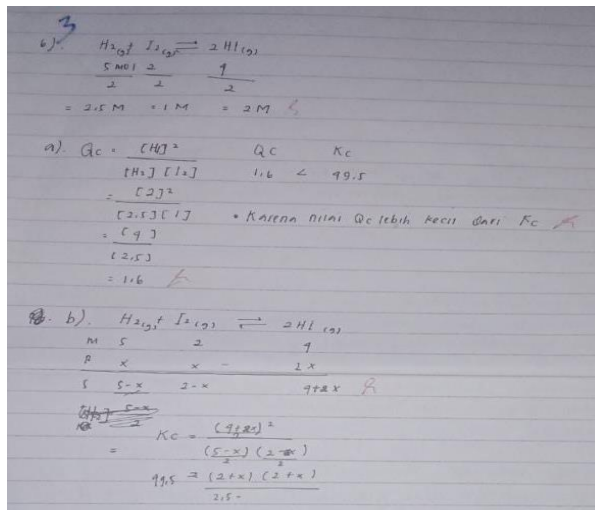 3
6).
H2(g) + I2(g) ⇌ 2HI(g)
5 mol 2 4
2 2 2
= 2.5 M = 1 M = 2 M
a). Qc = [HI]² Qc Kc
[H2] [I2] 1.6 < 49.5
= [2]²
[2.5] [1] • Karena nilai Qc lebih kecil dari Kc
= [4]
[2.5]
= 1.6
b). H2(g) + I2(g) ⇌ 2HI(g)
M 5 2 4
R x x - 2x
S 5-x 2-x 4+2x
5-x
2
Kc = (4+2x)²
2
= (5-x) (2-x)
2 2
49.5 = (2+x) (2+x)
2.5 -